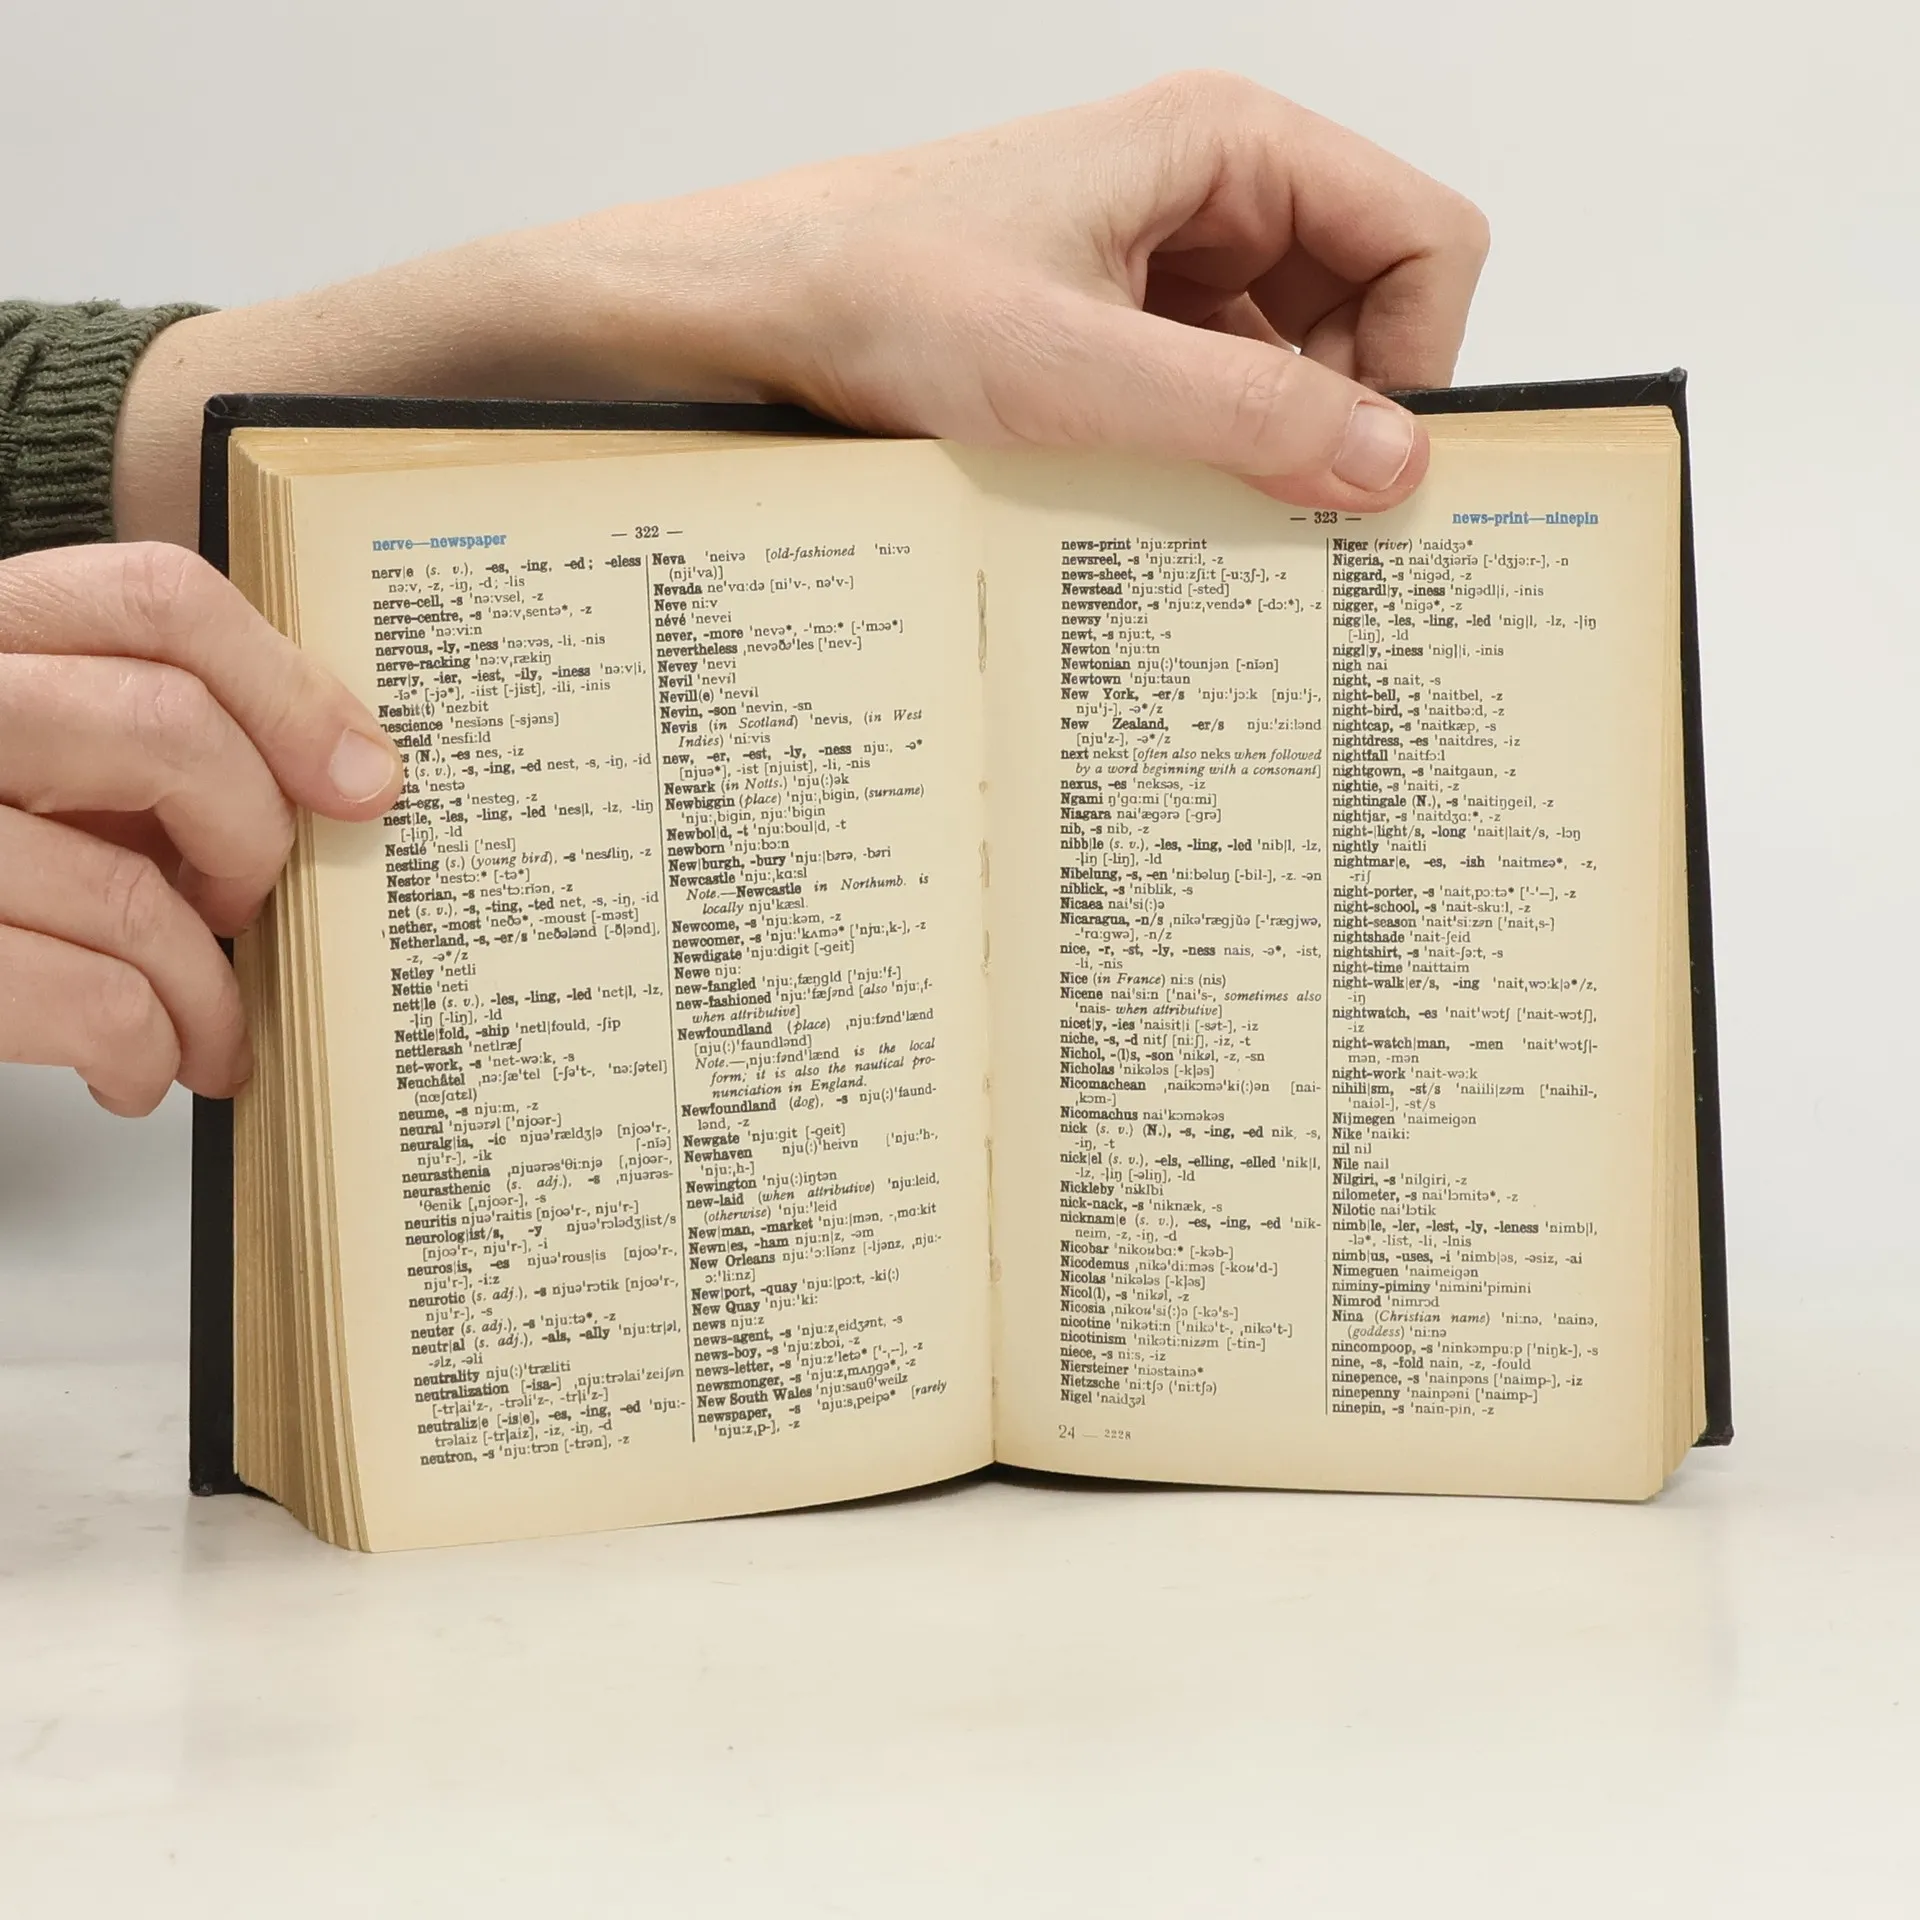 nerve—newspaper
— 322 —
nerv|e (s. v.), -es, -ing, -ed; -eless
nə:v, -z, -iŋ, -d; -lis
nerve-cell, -s 'nə:vsel, -z
nerve-centre, -s 'nə:vˌsentə*, -z
nervine 'nə:vi:n
nervous, -ly, -ness 'nə:vəs, -li, -nis
nerve-racking 'nə:vˌrækiŋ
nerv|y, -ier, -iest, -ily, -iness 'nə:v|i,
-ĭə* [-jə*], -iist [-jist], -ili, -inis
Nesbit(t) 'nezbit
nescience 'nesĭəns [-sjəns]
'nesfi:ld
(N.), -es nes, -iz
(s. v.), -s, -ing, -ed nest, -s, -iŋ, -id
'nestə
-s 'nesteg, -z
nest|le, -les, -ling, -led 'nes|l, -lz, -liŋ
[-l̩iŋ], -ld
Nestlé 'nesli ['nesl]
nestling (s.) (young bird), -s 'nesliŋ, -z
Nestor 'nestɔ:* [-tə*]
Nestorian, -s nes'tɔ:rĭən, -z
net (s. v.), -s, -ting, -ted net, -s, -iŋ, -id
nether, -most 'neðə*, -moust [-məst]
Netherland, -s, -er/s 'neðələnd [-ðl̩ənd],
-z, -ə*/z
Netley 'netli
Nettie 'neti
nett|le (s. v.), -les, -ling, -led 'net|l, -lz,
-l̩iŋ [-liŋ], -ld
Nettle|fold, -ship 'netl|fould, -ʃip
nettlerash 'netlræʃ
net-work, -s 'net-wə:k, -s
Neuchâtel ˌnə:ʃæ'tel [-ʃə't-, 'nə:ʃətel]
(nœʃɑtɛl)
neume, -s nju:m, -z
neural 'njuərəl ['njɔər-]
neuralg|ia, -ic njuə'rældʒ|ə [njɔə'r-,
nju'r-], -ik [-nĭə]
neurasthenia ˌnjuərəs'θi:njə [ˌnjɔər-,
neurasthenic (s. adj.), -s ˌnjuərəs-
'θenik [ˌnjɔər-], -s
neuritis njuə'raitis [njɔə'r-, nju'r-]
neurolog|ist/s, -y njuə'rɔlədʒ|ist/s
[njɔə'r-, nju'r-], -i
neuros|is, -es njuə'rous|is [njɔə'r-,
nju'r-], -i:z
neurotic (s. adj.), -s njuə'rɔtik [njɔə'r-,
nju'r-], -s
neuter (s. adj.), -s 'nju:tə*, -z
neutr|al (s. adj.), -als, -ally 'nju:tr|əl,
-əlz, -əli
neutrality nju(:)'træliti
neutralization [-isa-] ˌnju:trəlai'zeiʃən
[-trl̩ai'z-, -trəli'z-, -trl̩i'z-]
neutraliz|e [-is|e], -es, -ing, -ed 'nju:-
trəlaiz [-trl̩aiz], -iz, -iŋ, -d
neutron, -s 'nju:trɔn [-trən], -z
Neva 'neivə [old-fashioned 'ni:və
(nji'va)]
Nevada ne'vɑ:də [ni'v-, nə'v-]
Neve ni:v
névé 'nevei
never, -more 'nevə*, -'mɔ:* [-'mɔə*]
nevertheless ˌnevəðə'les ['nev-]
Nevey 'nevi
Nevil 'nevil
Nevill(e) 'nevil
Nevin, -son 'nevin, -sn
Nevis (in Scotland) 'nevis, (in West
Indies) 'ni:vis
new, -er, -est, -ly, -ness nju:, -ə*
[njuə*], -ist [njuist], -li, -nis
Newark (in Notts.) 'nju(:)ək
Newbiggin (place) 'nju:ˌbigin, (surname)
'nju:ˌbigin, nju:'bigin
Newbol|d, -t 'nju:boul|d, -t
newborn 'nju:bɔ:n
New|burgh, -bury 'nju:|bərə, -bəri
Newcastle 'nju:ˌkɑ:sl
Note.—Newcastle in Northumb. is
locally nju'kæsl.
Newcome, -s 'nju:kəm, -z
newcomer, -s 'nju:'kʌmə* ['nju:ˌk-], -z
Newdigate 'nju:digit [-geit]
Newe nju:
new-fangled 'nju:ˌfæŋgld ['nju:'f-]
new-fashioned 'nju:'fæʃənd [also 'nju:ˌf-
when attributive]
Newfoundland (place) ˌnju:fənd'lænd
[nju(:)'faundlənd]
Note.—ˌnju:fənd'lænd is the local
form; it is also the nautical pro-
nunciation in England.
Newfoundland (dog), -s nju(:)'faund-
lənd, -z
Newgate 'nju:git [-geit]
Newhaven nju(:)'heivn ['nju:'h-,
'nju:ˌh-]
Newington 'nju(:)iŋtən
new-laid (when attributive) 'nju:leid,
(otherwise) 'nju:'leid
New|man, -market 'nju:|mən, -ˌmɑ:kit
Newn|es, -ham nju:n|z, -əm
New Orleans nju:'ɔ:lĭənz [-ljənz, ˌnju:-
ɔ:'li:nz]
New|port, -quay 'nju:|pɔ:t, -ki(:)
New Quay 'nju:'ki:
news nju:z
news-agent, -s 'nju:zˌeidʒənt, -s
news-boy, -s 'nju:zbɔi, -z
news-letter, -s 'nju:z'letə* ['-ˌ--], -z
newsmonger, -s 'nju:zˌmʌŋgə*, -z
New South Wales 'nju:sauθ'weilz
newspaper, -s 'nju:sˌpeipə* [rarely
'nju:zˌp-], -z
— 323 —
news-print—ninepin
news-print 'nju:zprint
newsreel, -s 'nju:zri:l, -z
news-sheet, -s 'nju:zʃi:t [-u:ʒʃ-], -z
Newstead 'nju:stid [-sted]
newsvendor, -s 'nju:zˌvendə* [-dɔ:*], -z
newsy 'nju:zi
newt, -s nju:t, -s
Newton 'nju:tn
Newtonian nju(:)'tounjən [-nĭən]
Newtown 'nju:taun
New York, -er/s 'nju:'jɔ:k [nju:'j-,
nju'j-], -ə*/z
New Zealand, -er/s nju:'zi:lənd
[nju'z-], -ə*/z
next nekst [often also neks when followed
by a word beginning with a consonant]
nexus, -es 'neksəs, -iz
Ngami ŋ'gɑ:mi ['ŋɑ:mi]
Niagara nai'ægərə [-grə]
nib, -s nib, -z
nibb|le (s. v.), -les, -ling, -led 'nib|l, -lz,
-l̩iŋ [-liŋ], -ld
Nibelung, -s, -en 'ni:bəluŋ [-bil-], -z, -ən
niblick, -s 'niblik, -s
Nicaea nai'si(:)ə
Nicaragua, -n/s ˌnikə'rægjŭə [-'rægjwə,
-'rɑ:gwə], -n/z
nice, -r, -st, -ly, -ness nais, -ə*, -ist,
-li, -nis
Nice (in France) ni:s (nis)
Nicene nai'si:n ['nai's-, sometimes also
'nais- when attributive]
nicet|y, -ies 'naisit|i [-sət-], -iz
niche, -s, -d nitʃ [ni:ʃ], -iz, -t
Nichol, -(l)s, -son 'nikəl, -z, -sn
Nicholas 'nikələs [-kl̩əs]
Nicomachean ˌnaikɔmə'ki(:)ən [nai-
ˌkɔm-]
Nicomachus nai'kɔməkəs
nick (s. v.) (N.), -s, -ing, -ed nik, -s,
-iŋ, -t
nick|el (s. v.), -els, -elling, -elled 'nik|l,
-lz, -l̩iŋ [-əliŋ], -ld
Nickleby 'niklbi
nick-nack, -s 'niknæk, -s
nicknam|e (s. v.), -es, -ing, -ed 'nik-
neim, -z, -iŋ, -d
Nicobar 'nikoubɑ:* [-kəb-]
Nicodemus ˌnikə'di:məs [-kou'd-]
Nicolas 'nikələs [-kl̩əs]
Nicol(l), -s 'nikəl, -z
Nicosia ˌnikou'si(:)ə [-kə's-]
nicotine 'nikəti:n ['nikə't-, ˌnikə't-]
nicotinism 'nikəti:nizəm [-tin-]
niece, -s ni:s, -iz
Niersteiner 'niəstainə*
Nietzsche 'ni:tʃə ('ni:tʃə)
Nigel 'naidʒəl
Niger (river) 'naidʒə*
Nigeria, -n nai'dʒiərĭə [-'dʒjə:r-], -n
niggard, -s 'nigəd, -z
niggardl|y, -iness 'nigədl|i, -inis
nigger, -s 'nigə*, -z
nigg|le, -les, -ling, -led 'nig|l, -lz, -l̩iŋ
[-liŋ], -ld
niggl|y, -iness 'nigl|i, -inis
nigh nai
night, -s nait, -s
night-bell, -s 'naitbel, -z
night-bird, -s 'naitbə:d, -z
nightcap, -s 'naitkæp, -s
nightdress, -es 'naitdres, -iz
nightfall 'naitfɔ:l
nightgown, -s 'naitgaun, -z
nightie, -s 'naiti, -z
nightingale (N.), -s 'naitiŋgeil, -z
nightjar, -s 'naitdʒɑ:*, -z
night-|light/s, -long 'nait|lait/s, -lɔŋ
nightly 'naitli
nightmar|e, -es, -ish 'naitmɛə*, -z,
-riʃ
night-porter, -s 'naitˌpɔ:tə* ['-'--], -z
night-school, -s 'nait-sku:l, -z
night-season 'nait'si:zən ['naitˌs-]
nightshade 'nait-ʃeid
nightshirt, -s 'nait-ʃə:t, -s
night-time 'naittaim
night-walk|er/s, -ing 'naitˌwɔ:k|ə*/z,
-iŋ
nightwatch, -es 'nait'wɔtʃ ['nait-wɔtʃ],
-iz
night-watch|man, -men 'nait'wɔtʃ|-
mən, -mən
night-work 'nait-wə:k
nihili|sm, -st/s 'naiili|zəm ['naihil-,
'naiəl-], -st/s
Nijmegen 'naimeigən
Nike 'naiki:
nil nil
Nile nail
Nilgiri, -s 'nilgiri, -z
nilometer, -s nai'lɔmitə*, -z
Nilotic nai'lɔtik
nimb|le, -ler, -lest, -ly, -leness 'nimb|l,
-lə*, -list, -li, -lnis
nimb|us, -uses, -i 'nimb|əs, -əsiz, -ai
Nimeguen 'naimeigən
niminy-piminy 'nimini'pimini
Nimrod 'nimrɔd
Nina (Christian name) 'ni:nə, 'nainə,
(goddess) 'ni:nə
nincompoop, -s 'ninkəmpu:p ['niŋk-], -s
nine, -s, -fold nain, -z, -fould
ninepence, -s 'nainpəns ['naimp-], -iz
ninepenny 'nainpəni ['naimp-]
ninepin, -s 'nain-pin, -z
24 — 2228